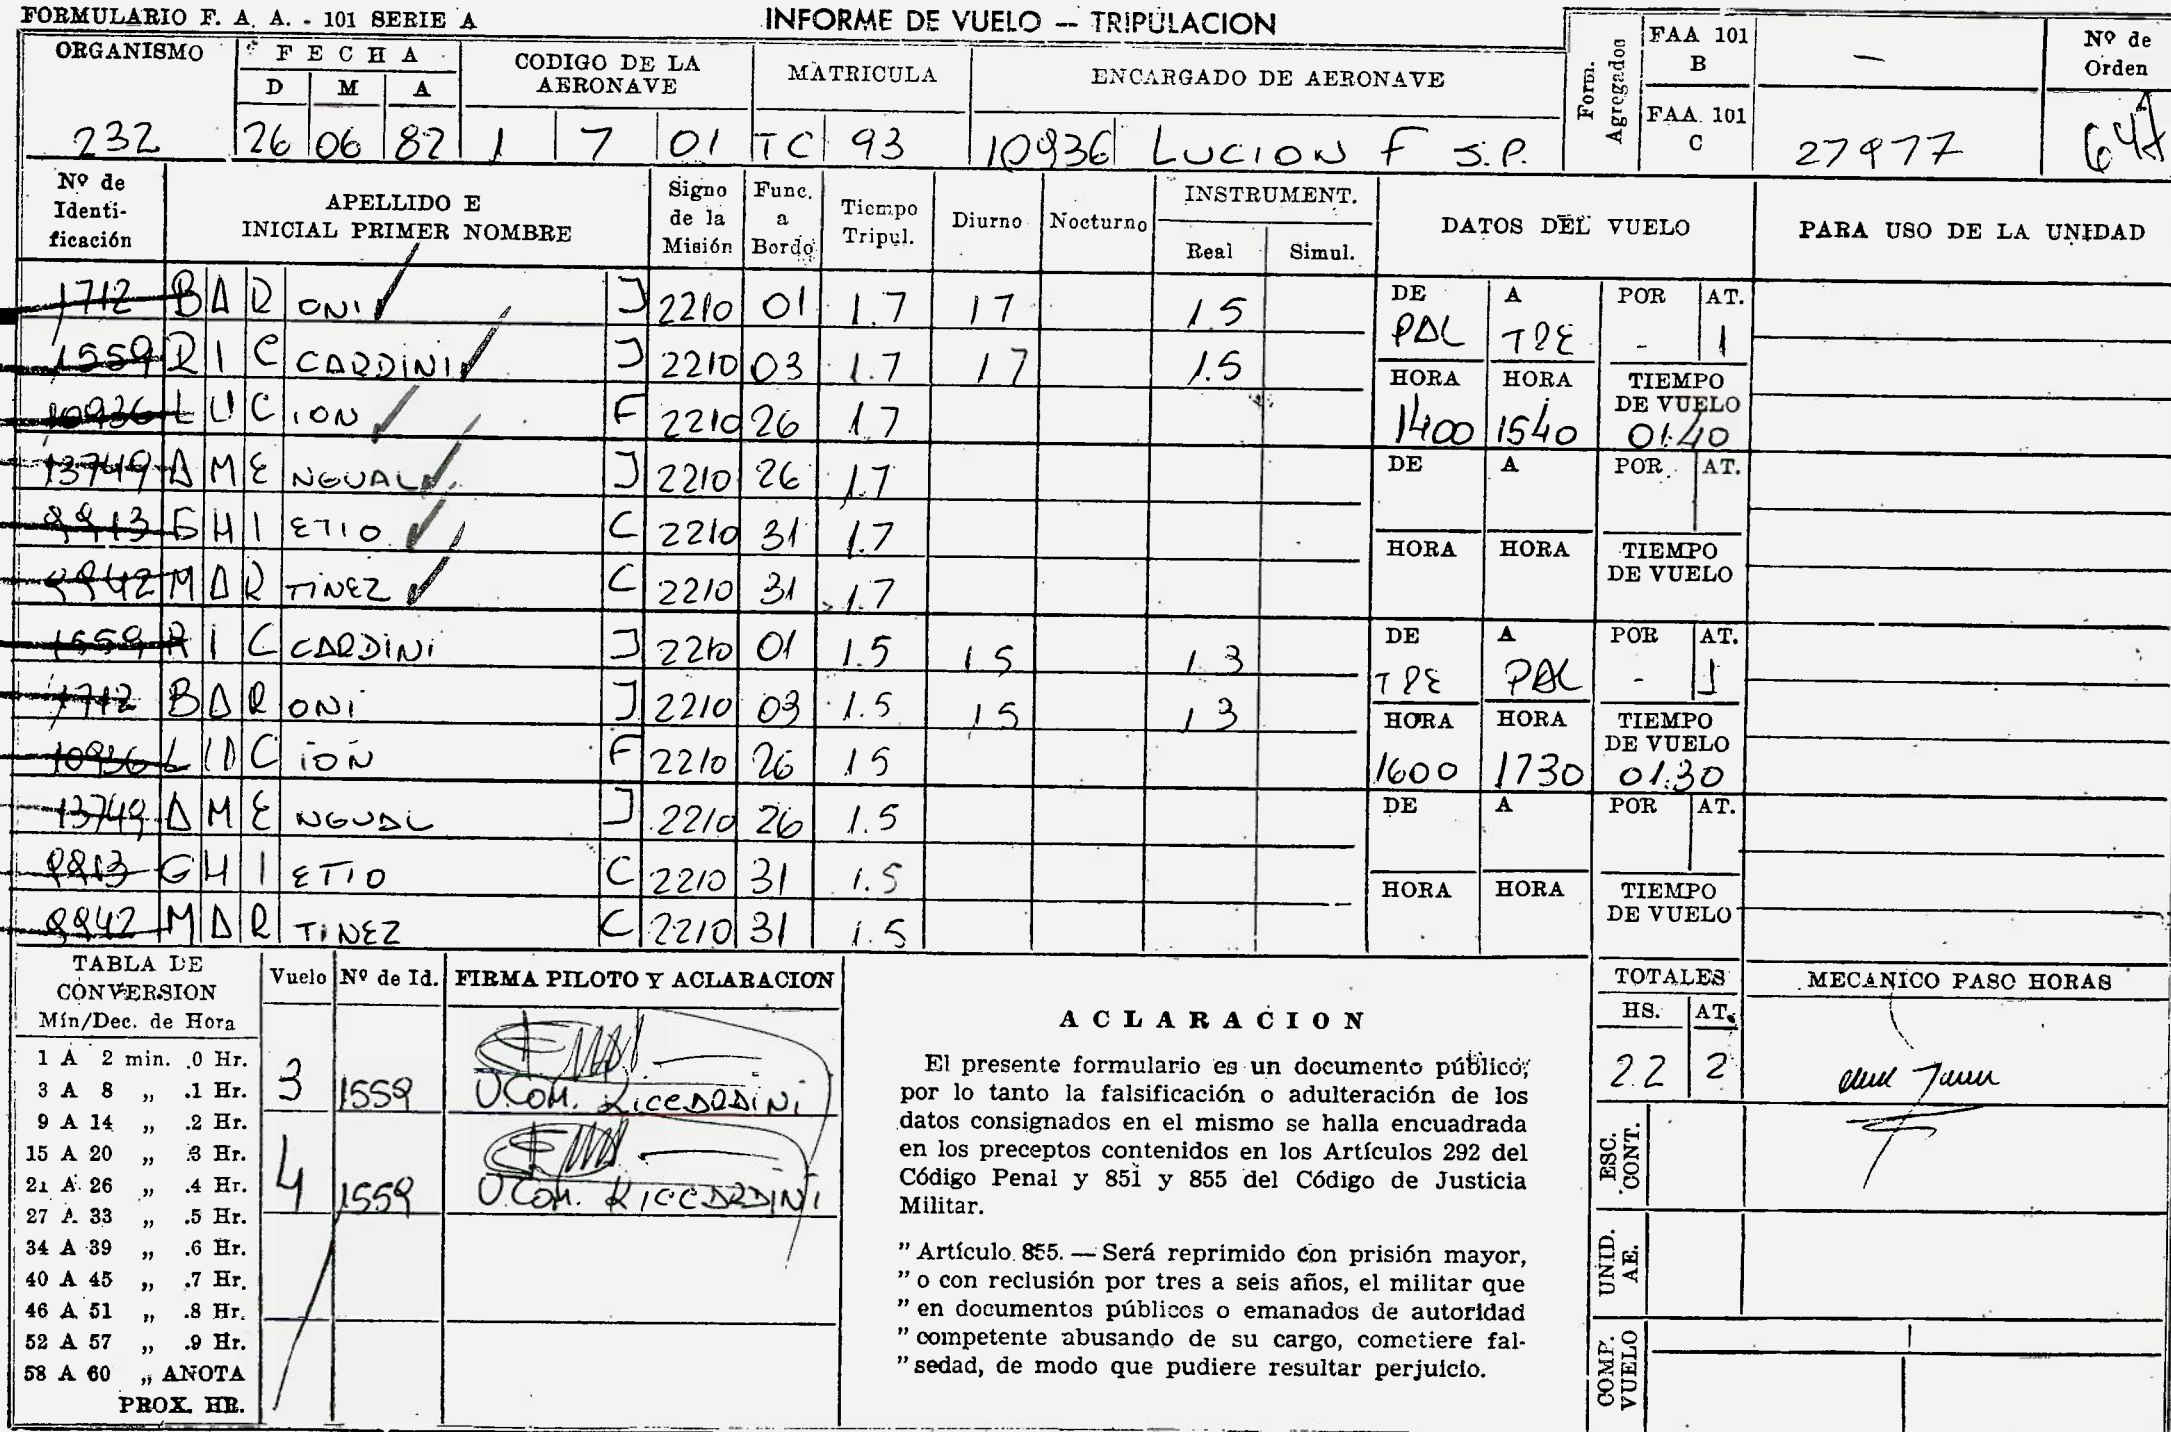 FORMULARIO F. A. A. - 101 SERIE A
INFORME DE VUELO — TRIPULACION
ORGANISMO
FECHA
D M A
CODIGO DE LA AERONAVE
MATRICULA
ENCARGADO DE AERONAVE
Form. Agregados
FAA 101 B
—
FAA 101 C
27977
Nº de Orden
232 26 06 82 1 7 01 TC 93 10936 LUCION F S.P.
Nº de Identificación
APELLIDO E INICIAL PRIMER NOMBRE
Signo de la Misión
Func. a Bordo
Tiempo Tripul.
Diurno
Nocturno
INSTRUMENT.
Real Simul.
DATOS DEL VUELO
PARA USO DE LA UNIDAD
1712 BARONI J 2210 01 1.7 17 1.5
1559 RICCARDINI J 2210 03 1.7 17 1.5
10936 LUCION F 2210 26 1.7
13749 AMENGUAL J 2210 26 1.7
GHIETIO C 2210 31 1.7
MARTINEZ C 2210 31 1.7
1559 RICCARDINI J 2210 01 1.5 15 13
1712 BARONI J 2210 03 1.5 15 13
10936 LUCION F 2210 26 15
13749 AMENGUAL J 2210 26 1.5
GHIETIO C 2210 31 1.5
MARTINEZ C 2210 31 1.5
DE A POR AT.
PAL TRE - 1
HORA HORA TIEMPO DE VUELO
1400 1540 01:40
DE A POR AT.
HORA HORA TIEMPO DE VUELO
DE A POR AT.
TRE PAL - 1
HORA HORA TIEMPO DE VUELO
1600 1730 01:30
DE A POR AT.
HORA HORA TIEMPO DE VUELO
TABLA DE
CONVERSION
Min/Dec. de Hora
1 A 2 min. .0 Hr.
3 A 8 „ .1 Hr.
9 A 14 „ .2 Hr.
15 A 20 „ .3 Hr.
21 A 26 „ .4 Hr.
27 A 33 „ .5 Hr.
34 A 39 „ .6 Hr.
40 A 45 „ .7 Hr.
46 A 51 „ .8 Hr.
52 A 57 „ .9 Hr.
58 A 60 „ ANOTA
PROX. HR.
Vuelo Nº de Id. FIRMA PILOTO Y ACLARACION
3 1559 V.COM. RICCARDINI
4 1559 V.COM. RICCARDINI
ACLARACION
El presente formulario es un documento público,
por lo tanto la falsificación o adulteración de los
datos consignados en el mismo se halla encuadrada
en los preceptos contenidos en los Artículos 292 del
Código Penal y 851 y 855 del Código de Justicia
Militar.
" Artículo 855. — Será reprimido con prisión mayor,
" o con reclusión por tres a seis años, el militar que
" en documentos públicos o emanados de autoridad
" competente abusando de su cargo, cometiere fal-
" sedad, de modo que pudiere resultar perjuicio.
TOTALES
HS. AT.
2
MECANICO PASO HORAS
ESC. CONT.
UNID. AE.
COMP. VUELO